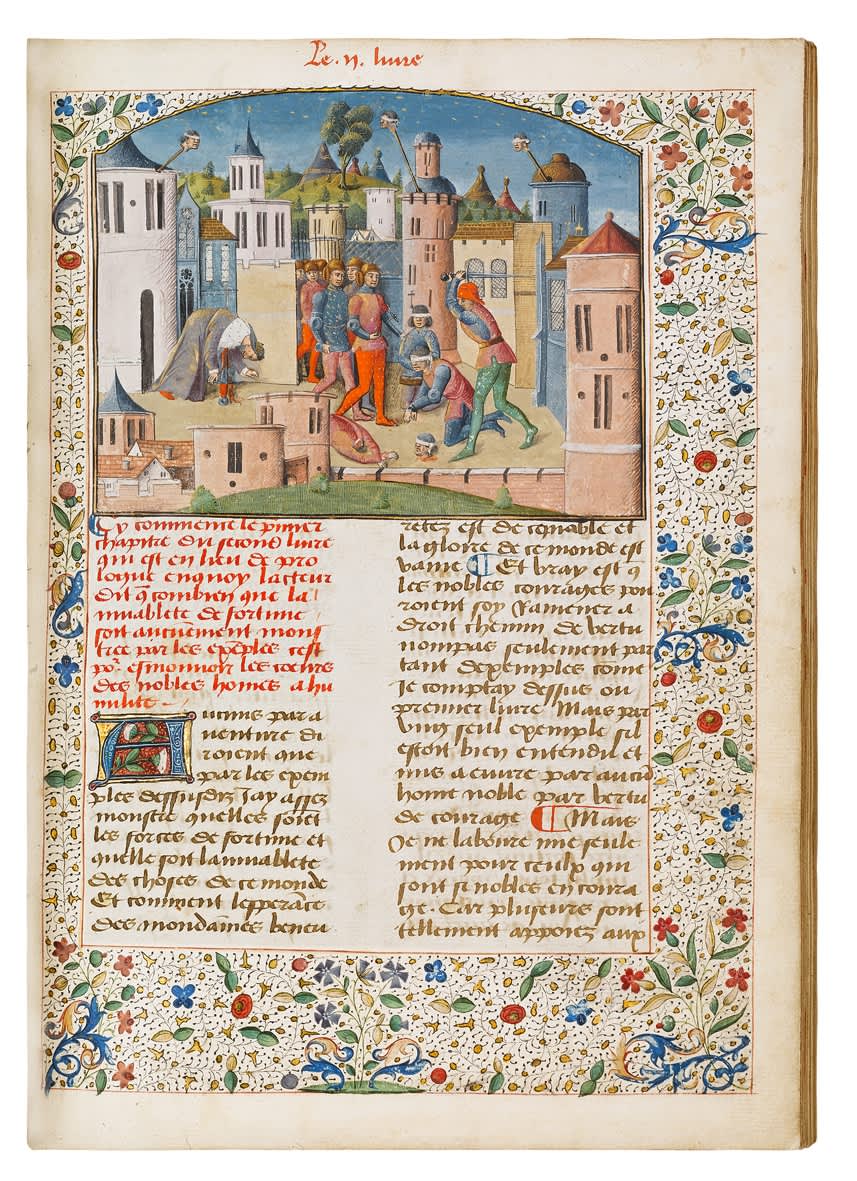 Le .ij. liure
Cy commence le pmier
chapitre du second liure
qui est en lieu de pro
logue enquoy lacteur
dit q̄ combien que la
muablete de fortune
soit aucuement mons
tree par les exēples cest
poʳ esmouuoir les coeurs
des nobles hōmes a hu
milite
Aucuns para
uenture di
roient que
par les exem
ples dessusdiz Jay assez
monstre quelles soiēt
les forces de fortune et
quelle soit la muablete
des choses de ce monde
Et comment lesperāce
des mondaines beneu
retez est decepuable et
la gloire de ce monde est
vaine ¶ Et vray est q̄
les nobles courages pou
roient soy Ramener a
droit chemin de vertu
nompas seulement par
tant dexemples cōme
Je comptay dessus ou
premier liure Mais par
vng seul exemple sil
estoit bien entendu et
mis a euure par aucū
home noble par vertu
de courage ¶ Mais
Je ne laboure mie seule
ment pour ceulx qui
sont si nobles en coura
ge. Car pluseurs sont
tellement appoiez aux